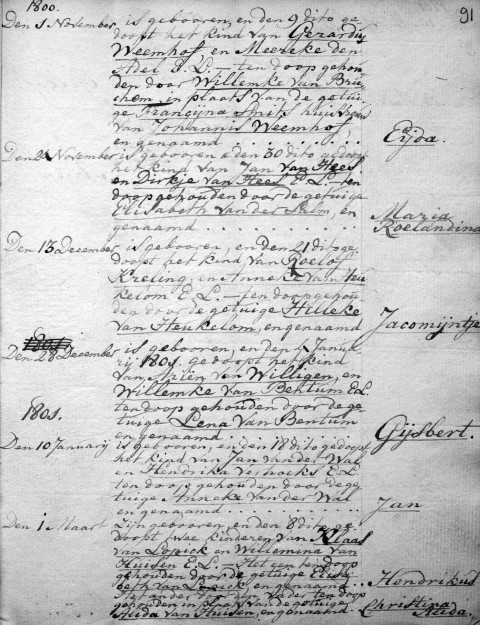 1800.
91
Den 1 November is gebooren, en den 9 dito ge
doopt het kind van Gerardus
Weemhof, en Meereke den
Adel E.L. — ten doop gehou
den door Willemke van Brue
chem, in plaats van de getui
ge Francyna Smits huisvrouw
van Johannis Weemhof,
en genaamd . . . . . . . . . Eijda.
Den 24 November is gebooren en den 30 dito gedoopt
het kind van Jan van Hees
en Dirkje van Hees E.L. — ten
doop gehouden door de getuige
Elisabeth van der Salm, en
genaamd . . . . . . . . . Maria
Roelandina
Den 13 December is gebooren, en den 21 dito ge
doopt het kind van Roelof
Kreling, en Anneke van Heu
kelom E.L. — ten doop gehou
den door de getuige Hilleke
van Heukelom, en genaamd Jacomijntje
Den 28 December is gebooren, en den 4 Janua
rij 1801. gedoopt het kind
van Ariën van Willigen, en
Willemke van Bentum E.L.
ten doop gehouden door de ge
tuige Lena van Bentum
en genaamd . . . . . . . Gijsbert.
1801.
Den 10 Januarij is gebooren, en den 18 dito gedoopt
het kind van Jan van der Wal
en Hendrika Verhoeks E.L.
ten doop gehouden door de ge
tuige Anneke van der Wal
en genaamd . . . . . . . . . Jan
Den 1 Maart zijn gebooren, en den 8 dito ge
doopt twee kinderen van Klaas
van Lopick en Willemina van
Huisen E.L. — Het een ten doop
gehouden door de getuige Elisa
beth van Lopick, en genaamd Hendrikus
Het ander door den vader ten doop
gehouden in plaats van de getuige
Alida van Huisen, en genaamd. Christina
Alida.